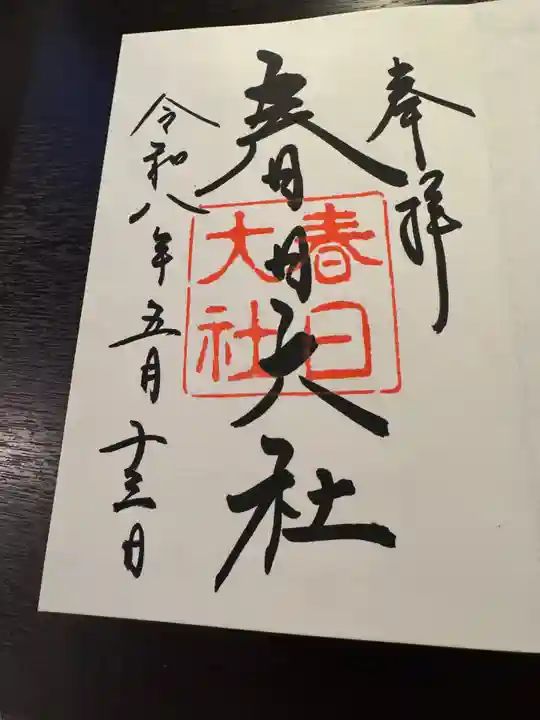 奉拝
春日大社
春日
大社
令和八年五月十三日